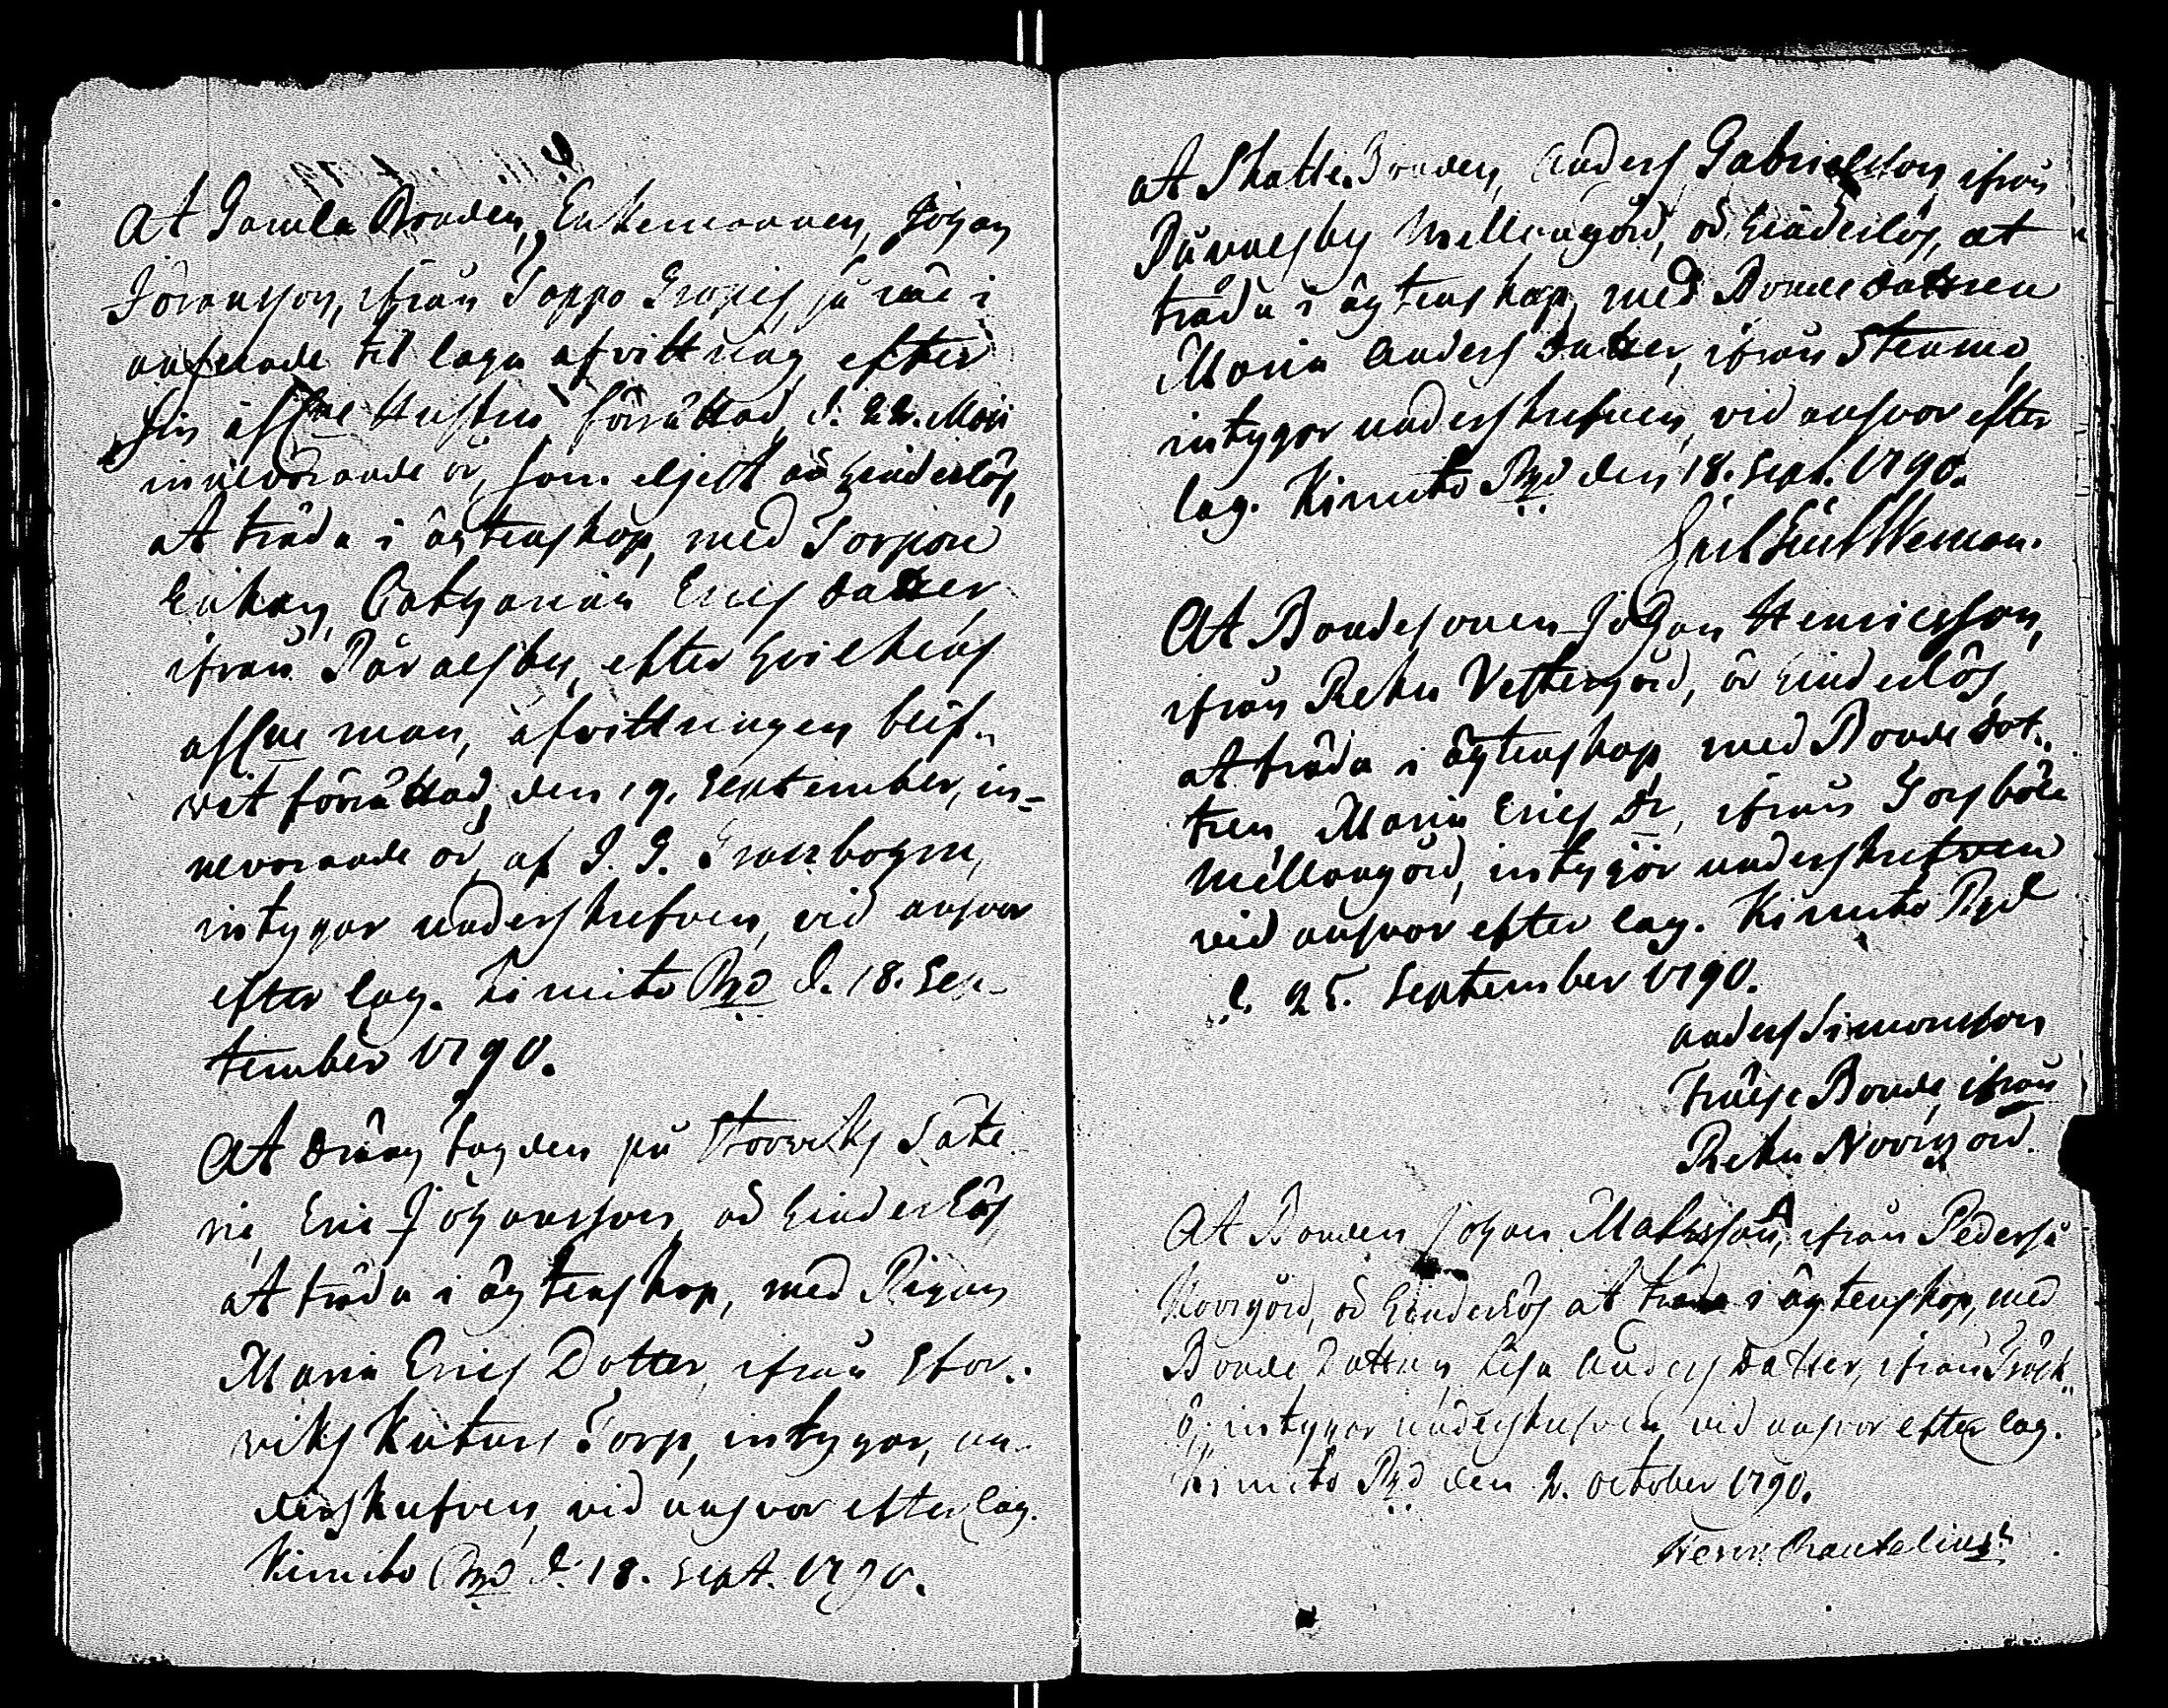 At Gamla Bonden, Enkemannen, Johan
Joransson, ifrån
anseende til laga afvittring efter
sin afl:ne Hustru förrättad d. 22. Maii
innevarande år, som eljest är hinderlös,
at träda i ägtenskap, med Torpare
Enkan, Catharina Erics dotter
ifrån Pärnesby, efter hvilkens
afl:ne man, afvittringen blif„
vit förrättad, den 19. September, in-
nevarande år, af I. G.
intygar underskrefven, vid answar
efter lag. Kimito Pgd d. 18. Sep-
tember 1790.
At Dräng
rie, Eric Johansson, är hinderlös
at träda i ägtenskap, med Pigan
Maria Erics Dotter, ifrån Stor„
viks Torp, intygar, un„
derskrefven, vid answar efter lag.
Kimito Pgd d. 18. Sept. 1790.
At Skatte Bonden, Anders Gabrielsson, ifrån
Pärnesby Mellangård, är hinderlös, at
träda i ägtenskap, med Bonde dottren
Maria Anders dotter, ifrån
intygar underskrefven, vid answar efter
lag. Kimito Pgd den 18. Sept. 1790.
At Bondesonen Johan Henricsson,
ifrån Reku Vestergård, är hinderlös,
at träda i ägtenskap, med Bonde dot„
tren, Maria Erics dr, ifrån
Mellangård, intygar underskrefven
vid answar efter lag. Kimito Pgd
d. 25. September 1790.
Anders Simonsson
Frälse Bonde, ifrån
Reku Norrgård.
At Bonden Johan Matsson, ifrån Pederså
Norrgård, är hinderlös at träda i ägtenskap, med
Bonde Dottren, Lisa Anders Dotter, ifrån
intygar underskrefven, vid answar efter lag.
Kimito Pgd den 2. October 1790.